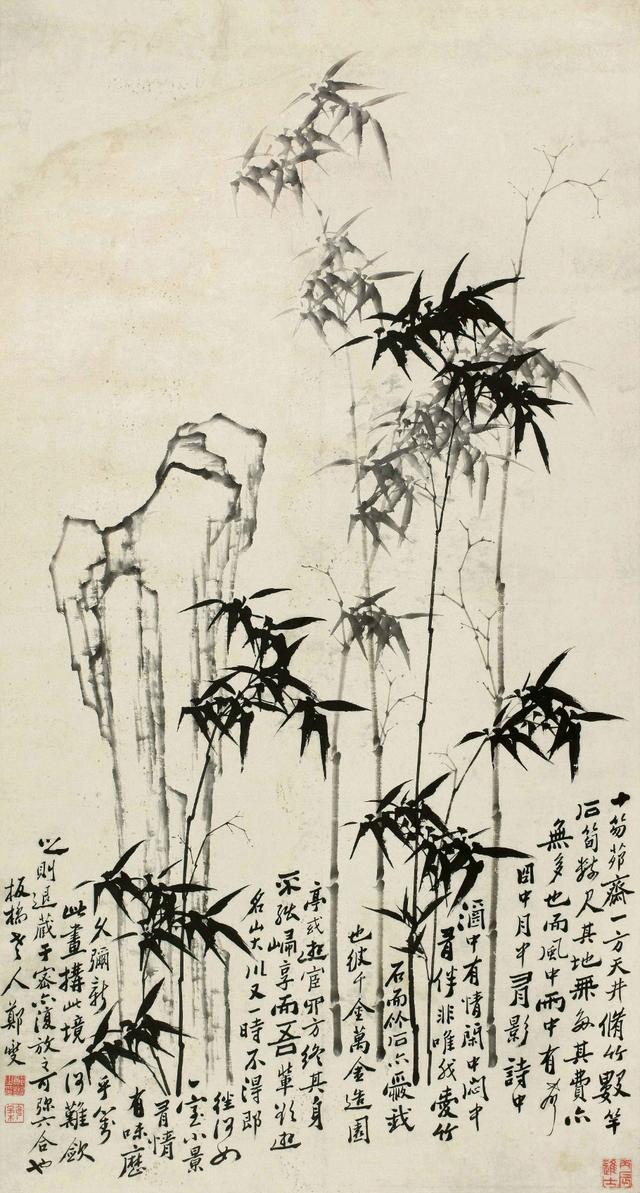 十笏茆齋一方天井脩竹數竿
石筍數尺其地無多其費亦
無多也而風中雨中有聲
日中月中有影詩中
酒中有情閑中悶中
有伴非唯我愛竹
石而竹石亦愛我
也彼千金萬金造園
亭或遊宦四方終其身
不能歸享而吾輩欲遊
名山大川又一時不得即
往何如
一室小景
有情
有味歷
久彌新
乎對
此畫構此境何難斂
之則退藏于密亦復放之可弥六合也
板橋老人鄭燮
丙辰進士